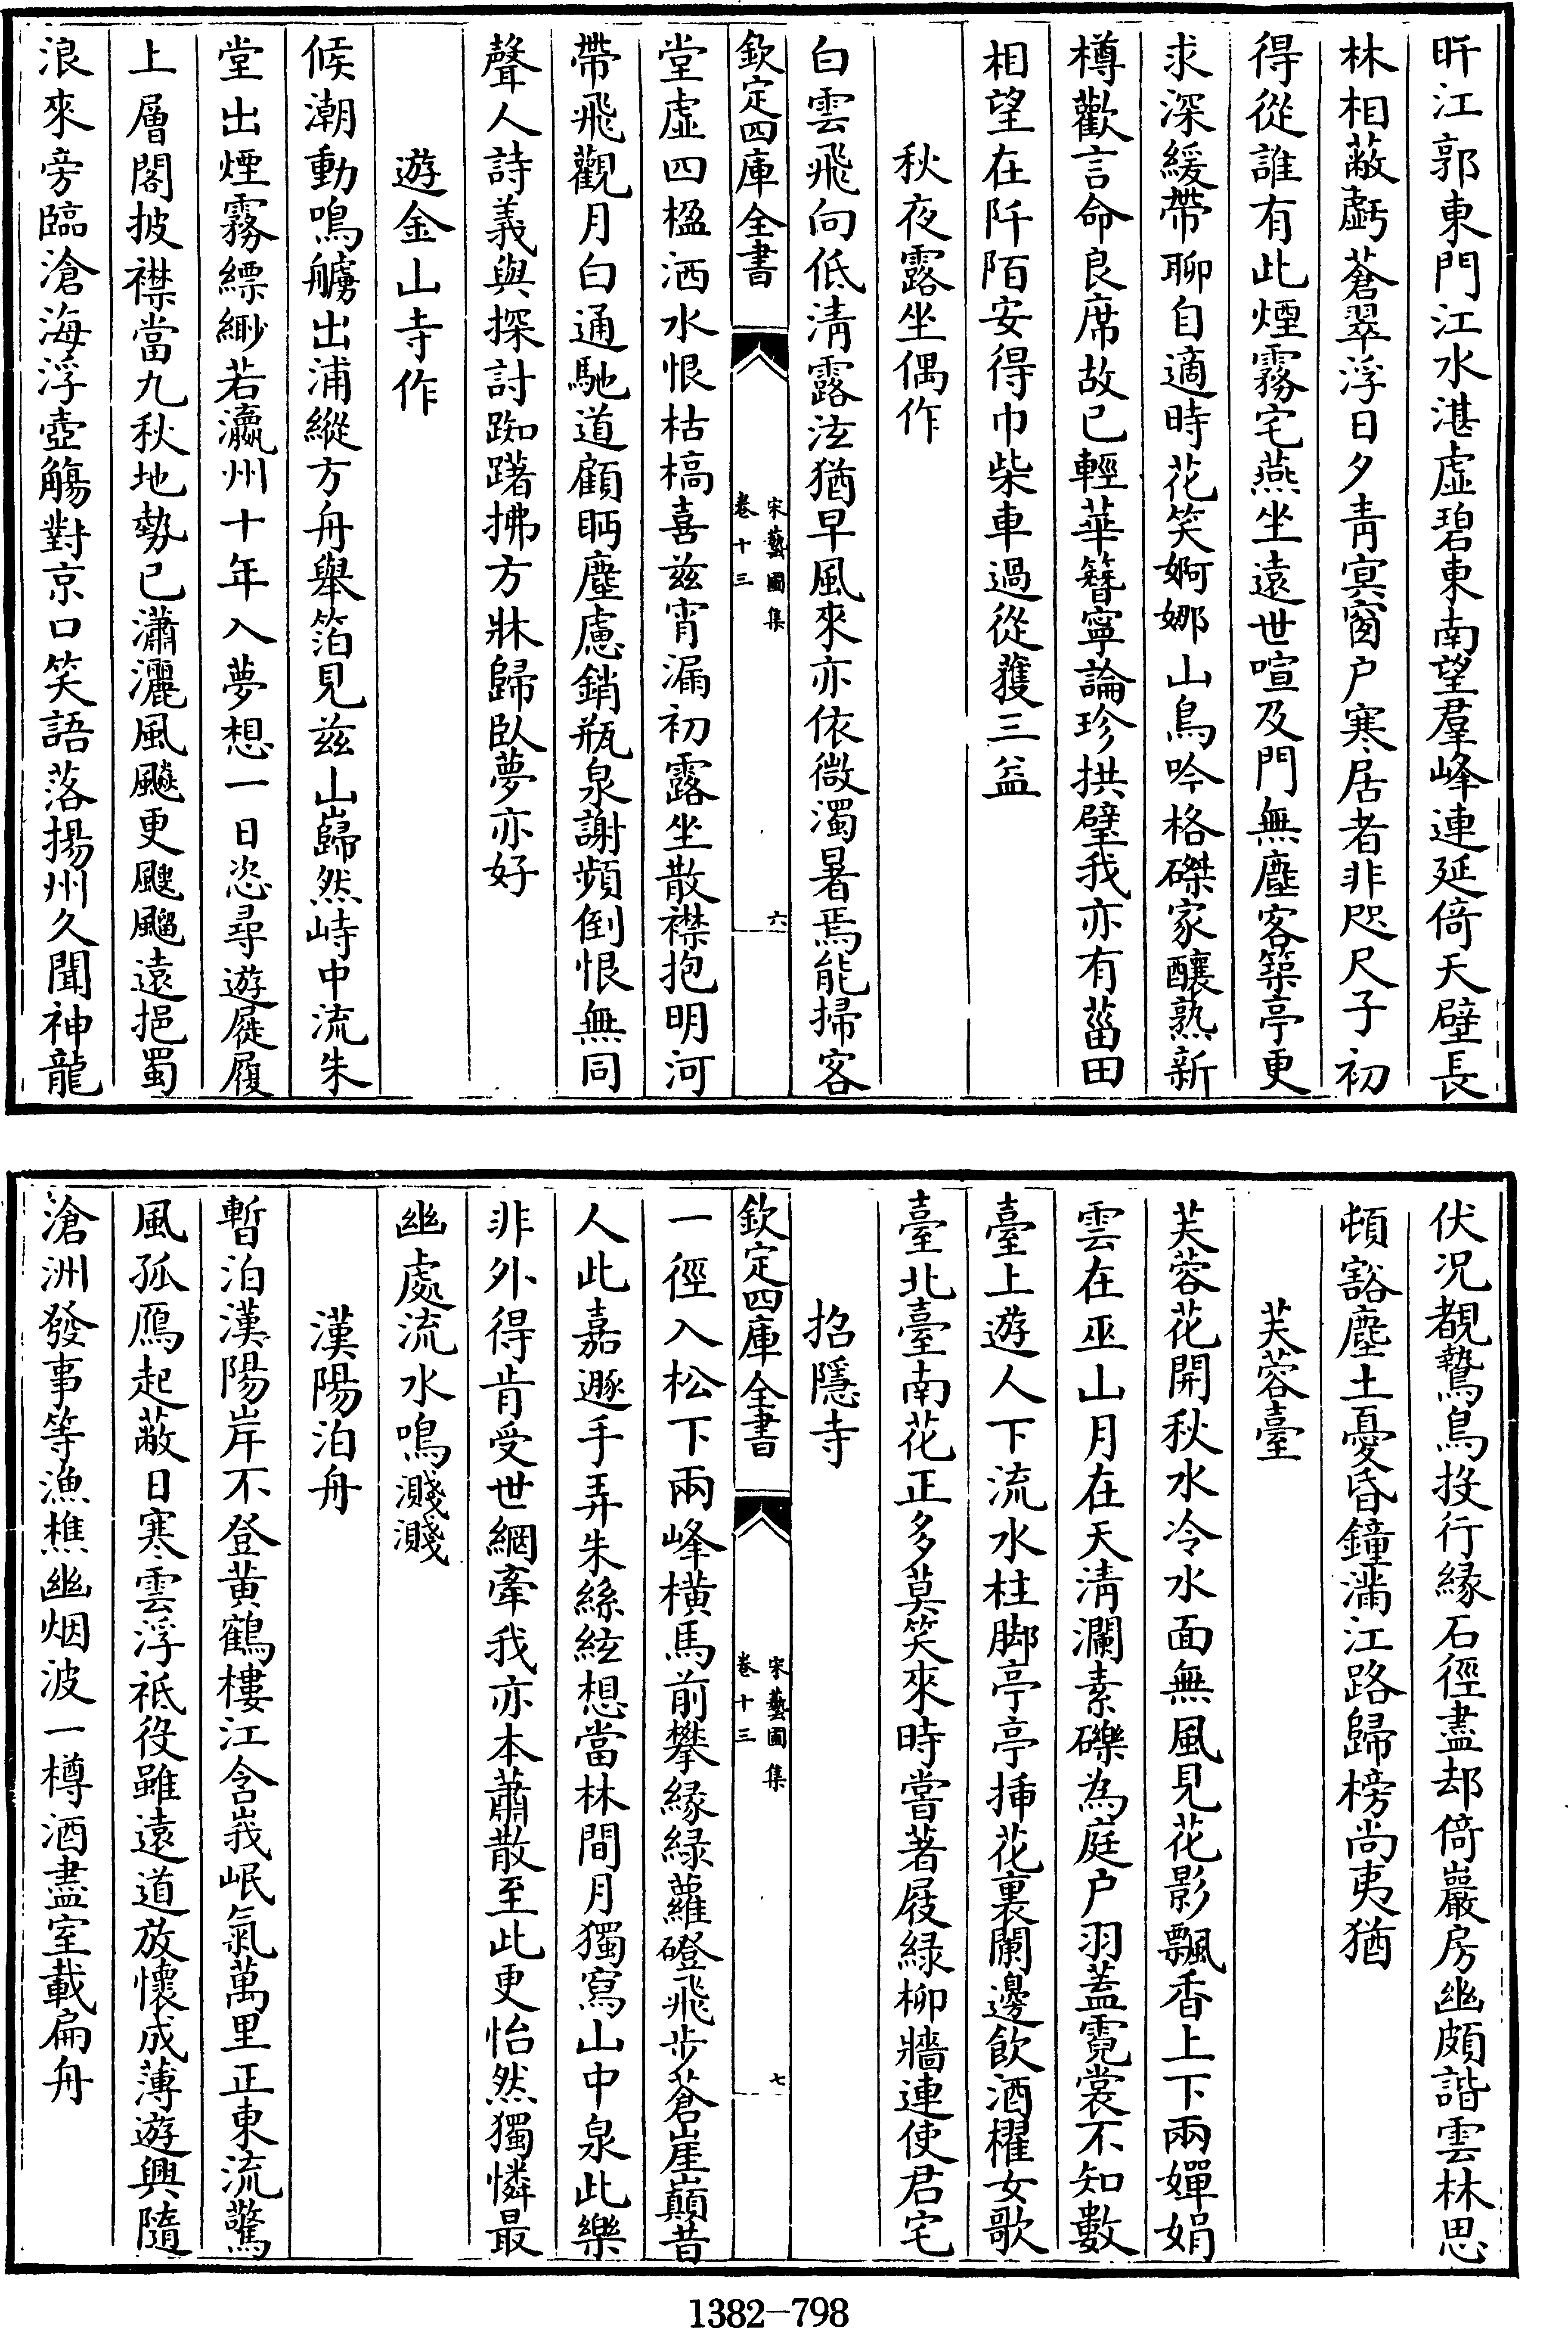 旴江郭東門江水湛虛碧東南望羣峰連延倚天壁長
林相蔽虧蒼翠浮日夕青冥窗户寒居者非咫尺子初
得從誰有此煙霧宅燕坐遠世喧及門無塵客築亭更
求深緩帶聊自適時花笑婀娜山鳥吟格磔家釀熟新
樽歡言命良席故已輕華簪寧論珍拱璧我亦有菑田
相望在阡陌安得巾柴車過從蒦三益
秋夜露坐偶作
白雲飛向低清露泫猶早風來亦依微濁暑焉能掃客
欽定四庫全書
宋藝圃集
卷十三
六
堂虛四楹洒水恨枯槁喜兹宵漏初露坐散襟抱明河
帶飛觀月白通馳道顧眄塵慮銷瓶泉謝頻倒恨無同
聲人詩義與探討踟躇拂方牀歸臥夢亦好
遊金山寺作
候潮動鳴艣出浦縱方舟舉笻見兹山巋然峙中流朱
堂出煙霧縹緲若瀛州十年入夢想一日恣尋遊屣履
上層閣披襟當九秋地勢已瀟灑風飈更颼飀遠挹蜀
浪來旁臨滄海浮壺觴對京口笑語落揚州久聞神龍
伏况覩鷙鳥投行緣石徑盡却倚巖房幽頗諧雲林思
頓豁塵土憂昏鐘滿江路歸榜尚夷猶
芙蓉臺
芙蓉花開秋水冷水面無風見花影飄香上下兩嬋娟
雲在巫山月在天清瀾素礫為庭户羽蓋霓裳不知數
臺上遊人下流水柱脚亭亭揷花裏闌邊飲酒櫂女歌
臺北臺南花正多莫笑來時嘗著屐綠柳牆連使君宅
招隱寺
欽定四庫全書
宋藝圃集
卷十三
七
一徑入松下兩峰橫馬前攀緣綠蘿磴飛步蒼崖巔昔
人此嘉遯手弄朱絲絃想當林間月獨寫山中泉此樂
非外得肯受世網牽我亦本蕭散至此更怡然獨憐最
幽處流水鳴濺濺
漢陽泊舟
暫泊漢陽岸不登黄鶴樓江含峩岷氣萬里正東流驚
風孤鴈起蔽日寒雲浮祗役雖遠道放懷成薄遊興隨
滄洲發事等漁樵幽烟波一樽酒盡室載扁舟
1382-798